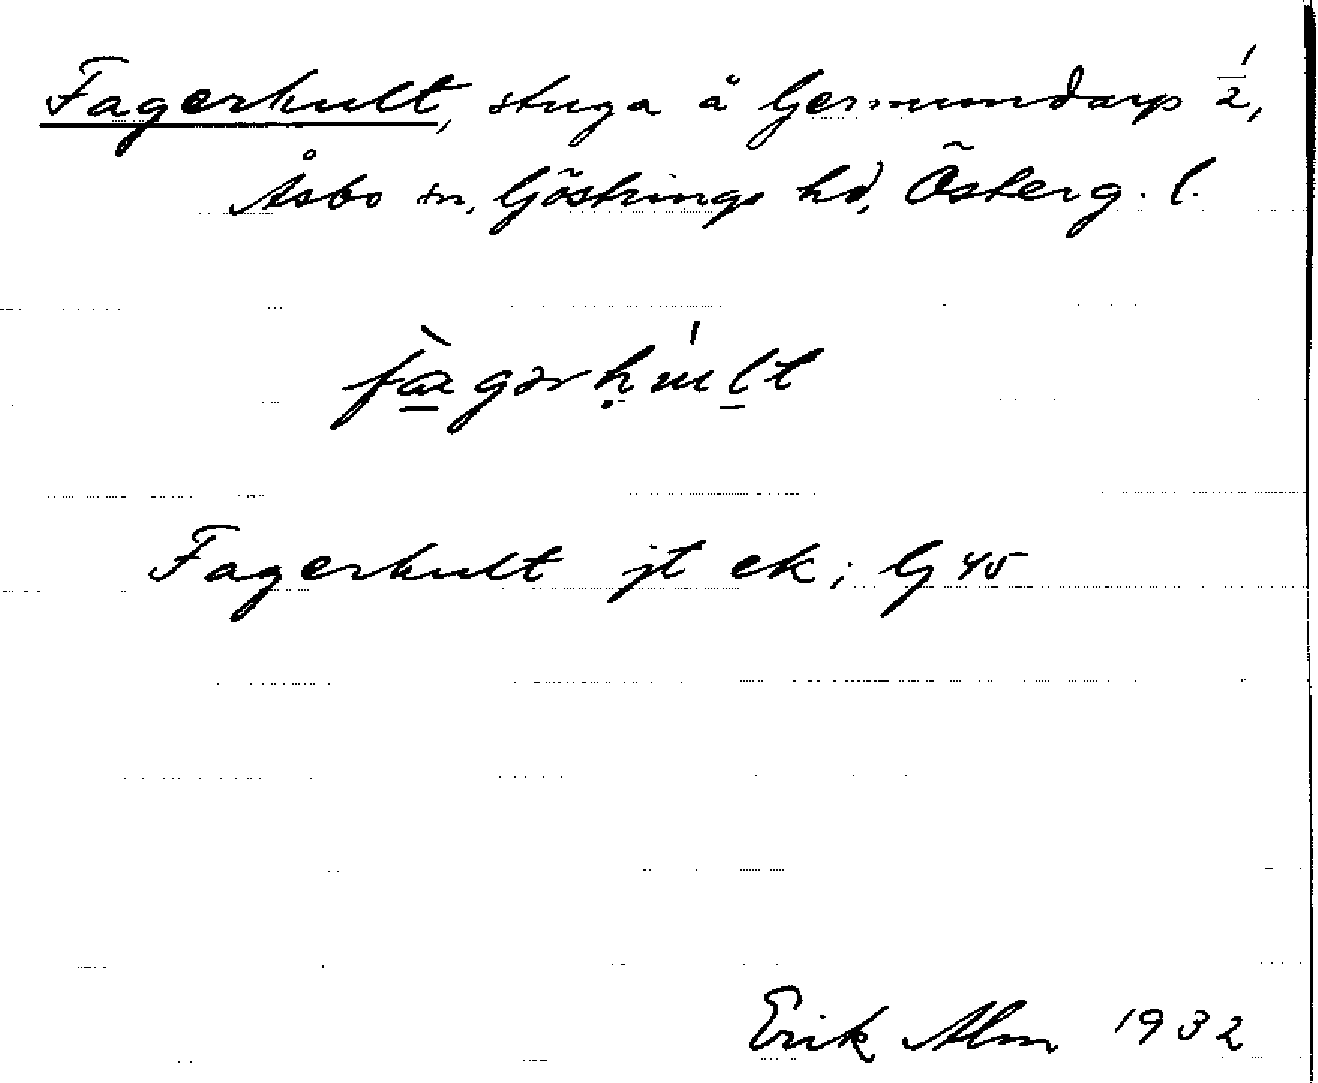 Fagerhult, stuga å Germundarp 1/2,
Åsbo sn, Göstrings hd, Österg. l.
fàgərhúlt
Fagerhult jt ek; G 45
Erik Alm 1932